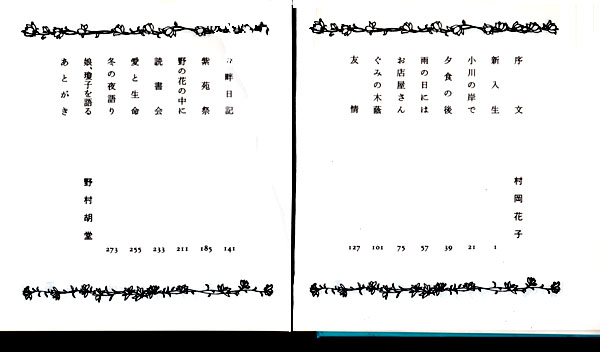 序文 村岡花子
新入生 1
小川の岸で 21
夕食の後 39
雨の日には 57
お店屋さん 75
ぐみの木蔭 101
友情 127
畔日記 141
紫苑祭 185
野の花の中に 211
読書会 233
愛と生命 255
冬の夜語り 273
娘、瓊子を語る 野村胡堂
あとがき